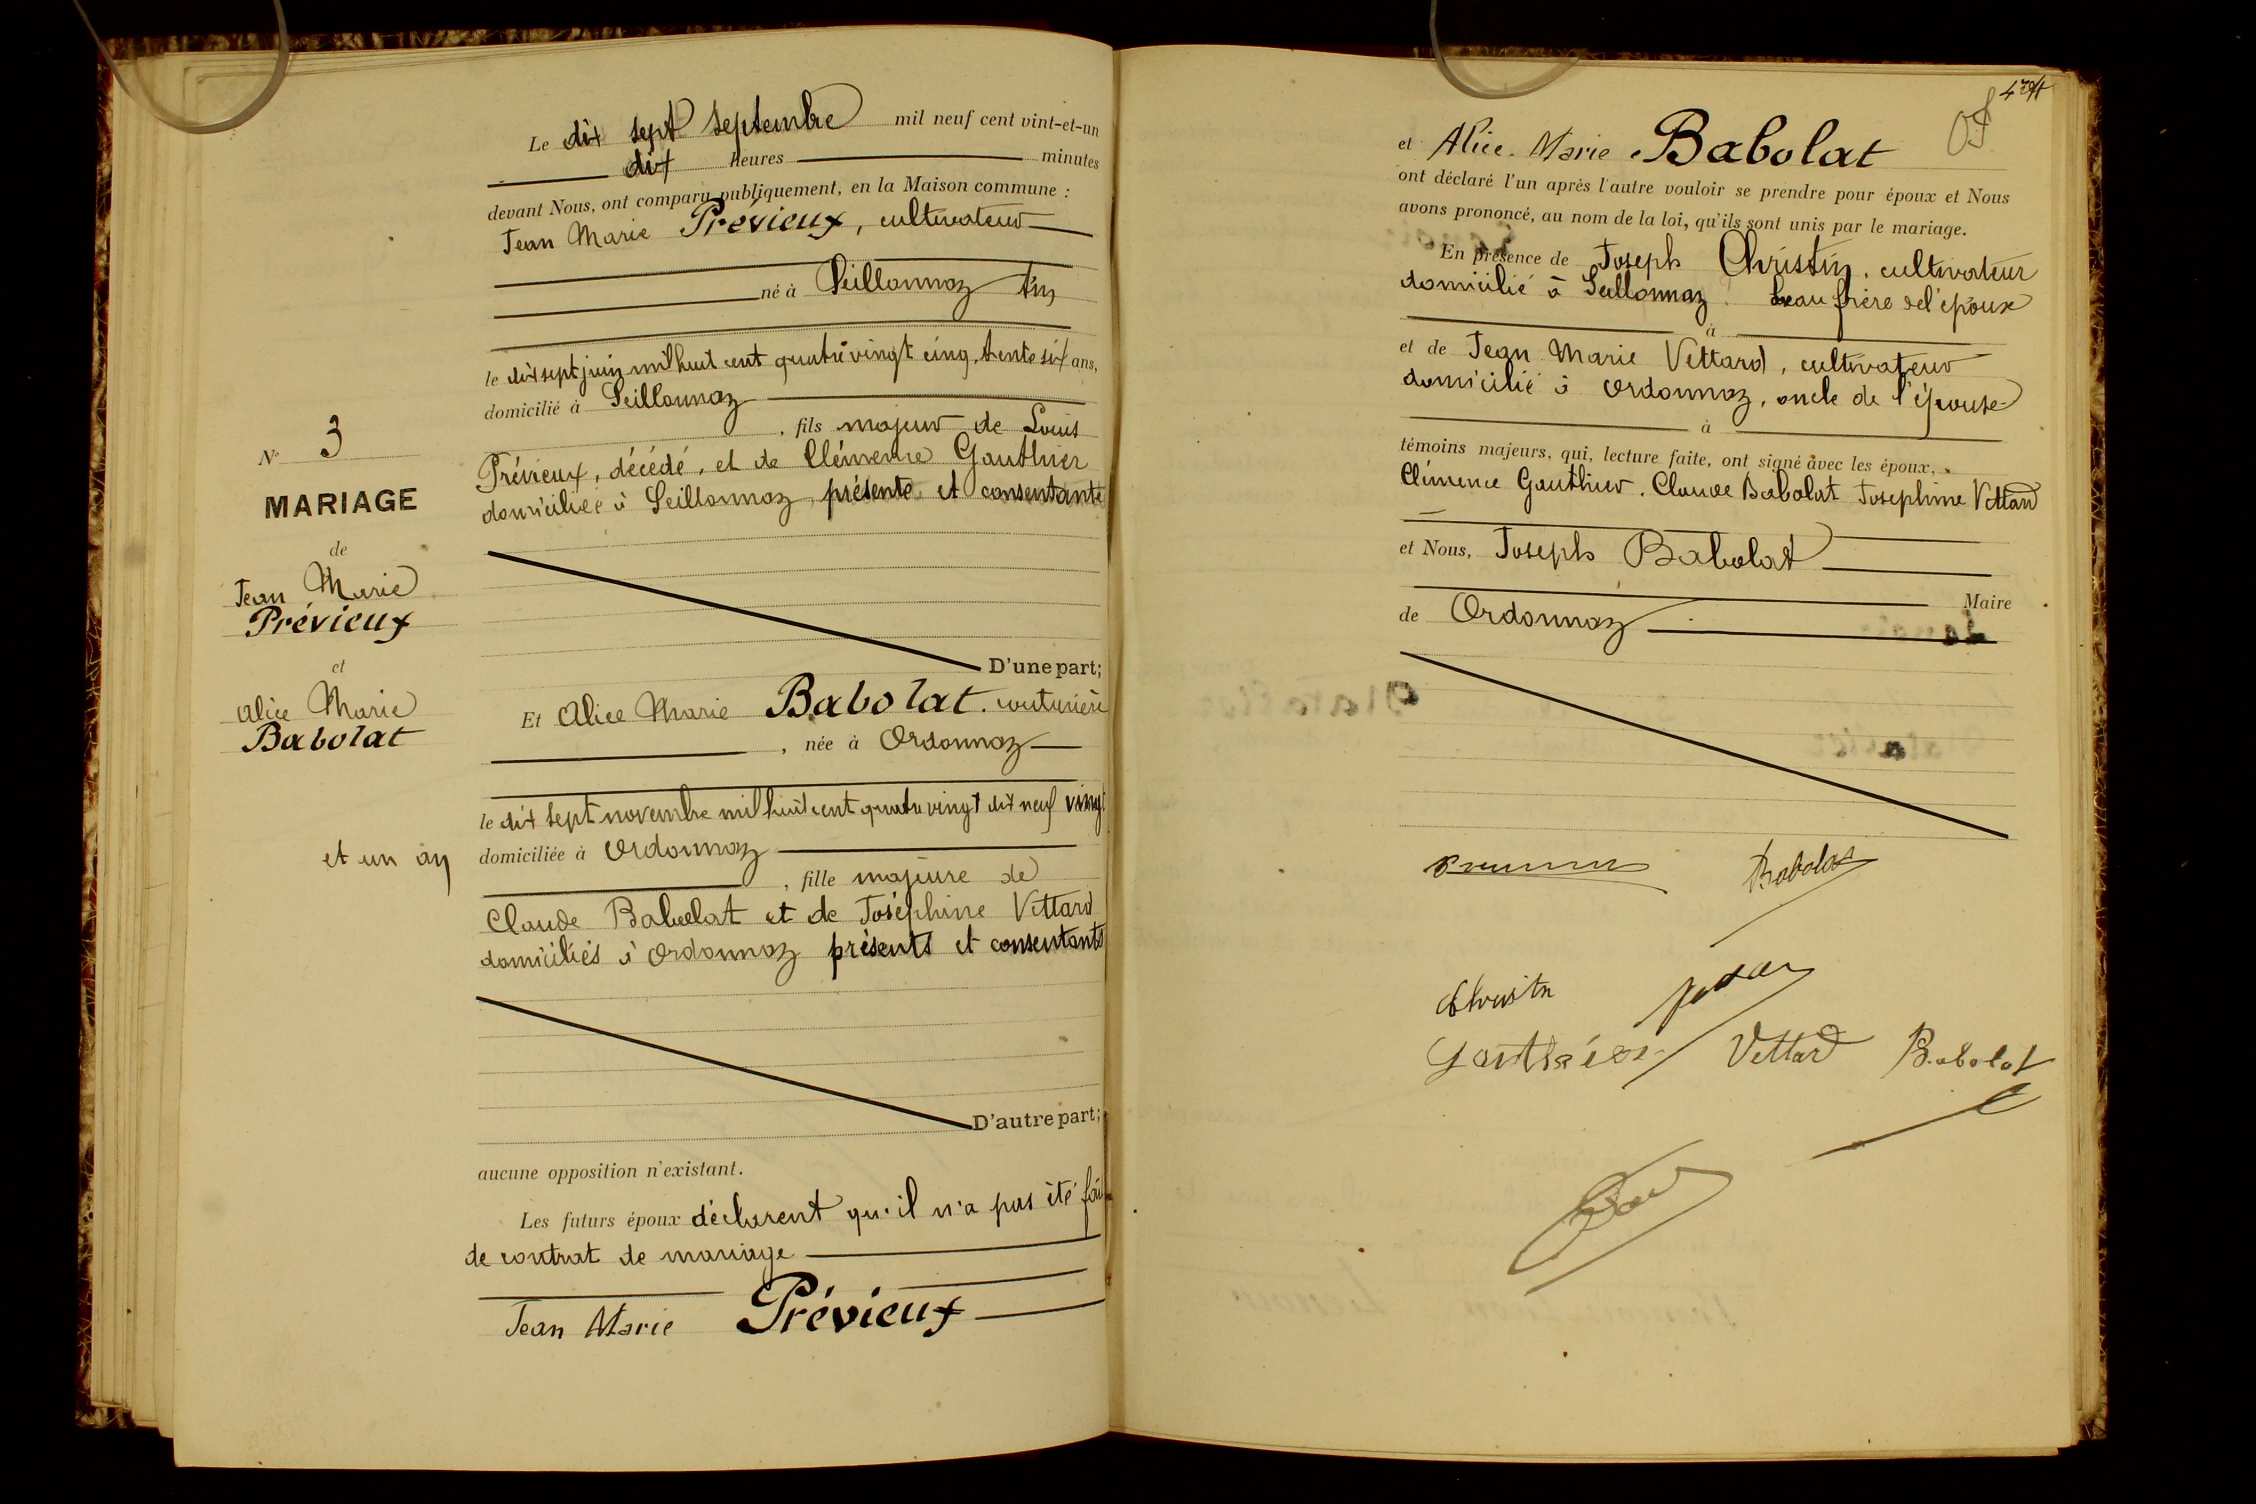 Le dix sept septembre mil neuf cent vint-et-un
dix heures minutes
devant Nous, ont comparu publiquement, en la Maison commune :
Jean Marie Prévieux, cultivateur
né à Seillonnaz Ain
le dix sept juin mil huit cent quatre vingt cinq, trente six ans,
domicilié à Seillonnaz
, fils majeur de Louis
Prévieux, décédé, et de Clémence Gauthier
domiciliée à Seillonnaz, présente et consentante
D'une part;
Et Alice Marie Babolat. couturière
, née à Ordonnaz
le dix sept novembre mil huit cent quatre vingt dix neuf vingt
domiciliée à Ordonnaz
, fille majeure de
Claude Babolat et de Joséphine Vettard
domiciliés à Ordonnaz présents et consentants
D'autre part;
aucune opposition n'existant.
Les futurs époux déclarent qu'il n'a pas été fait
de contrat de mariage
Jean Marie Prévieux
N° 3
MARIAGE
de
Jean Marie
Prévieux
et
Alice Marie
Babolat
et un an
et Alice Marie Babolat
ont déclaré l'un après l'autre vouloir se prendre pour époux et Nous
avons prononcé, au nom de la loi, qu'ils sont unis par le mariage.
En présence de Joseph Christin, cultivateur
domicilié à Seillonnaz beau frère de l'époux
à
et de Jean Marie Vettard, cultivateur
domicilié à Ordonnaz, oncle de l'épouse
à
témoins majeurs, qui, lecture faite, ont signé avec les époux,
Clémence Gauthier. Claude Babolat Josephine Vettard
et Nous, Joseph Babolat
Maire
de Ordonnaz
Babolat
Christin
Gauthier Vettard Babolat